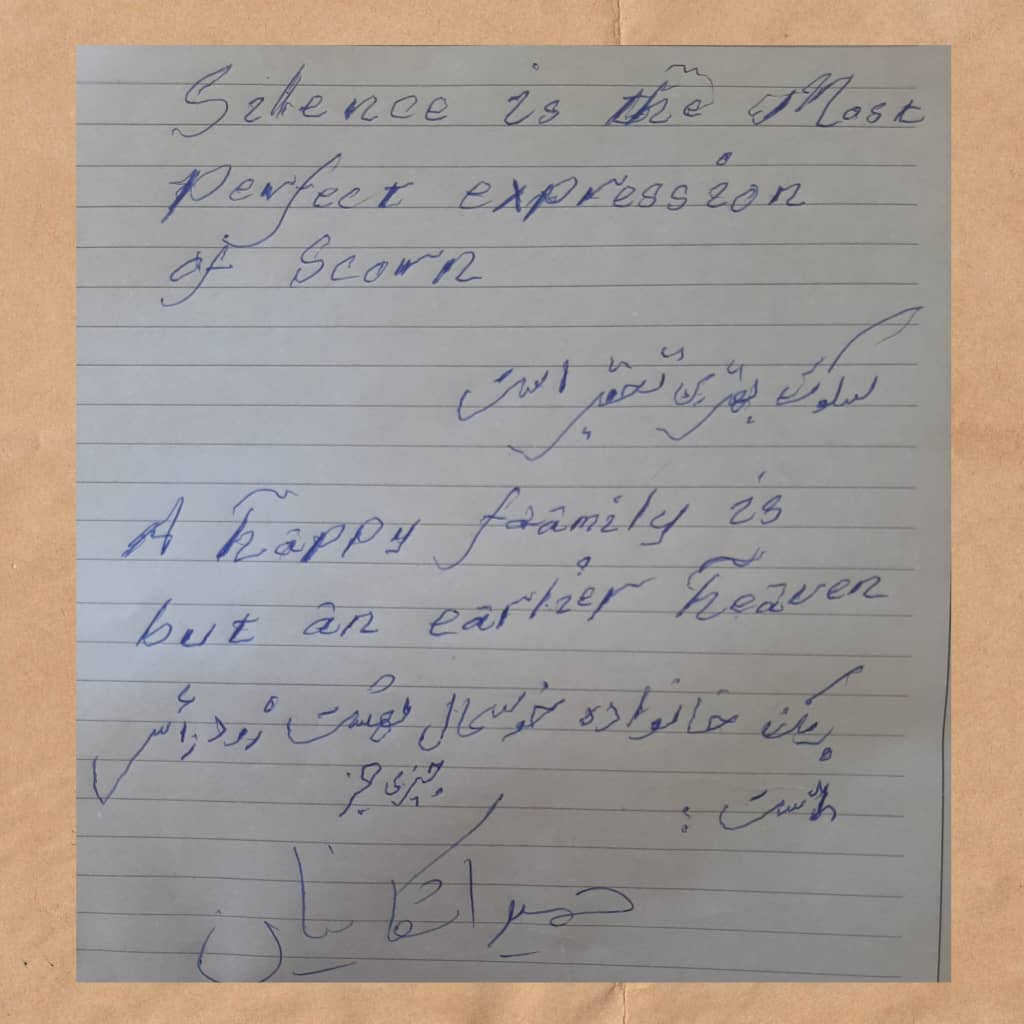 Silence is the Most
perfect expression
of Scorn
سکوت بهترین تحقیر است
A happy faamily is
but an earlier heaven
یک خانواده خوشحال بهشت زودرأس
چیزی جز
است :
حمید اشکانیان